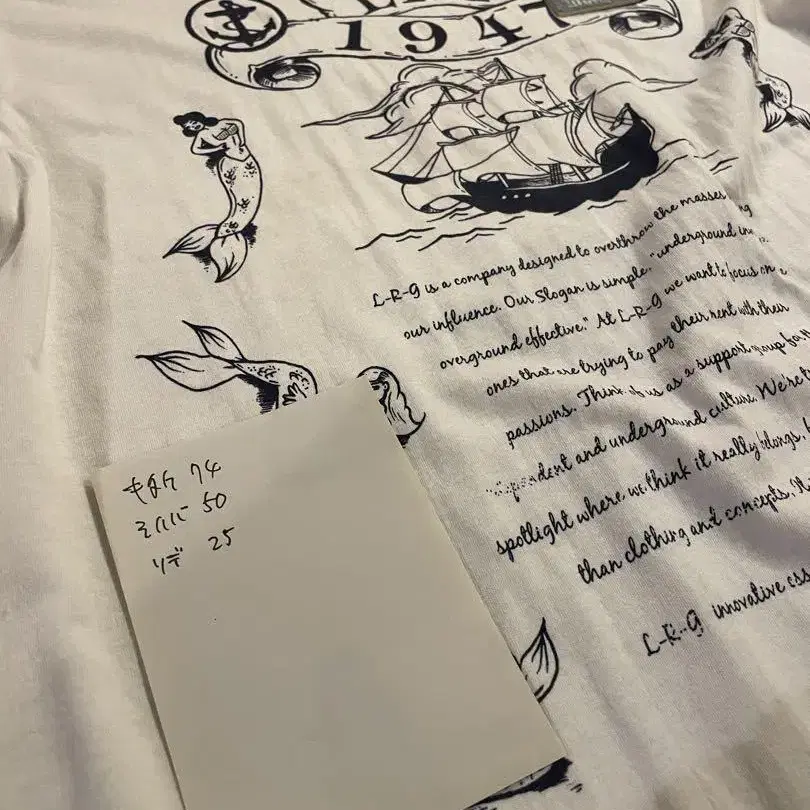 1947
L-R-G is a company designed to overthrow the masses
our influence. Our Slogan is simple. "underground
overground effective." At L-R-G we want to focus on
ones that are trying to pay their rent with their
passions. Think of us as a support group for
and underground culture. We're
spotlight where we think it really belongs.
than clothing and concepts.
L-R-G innovative
キタケ 74
ミハバ 50
ソデ 25